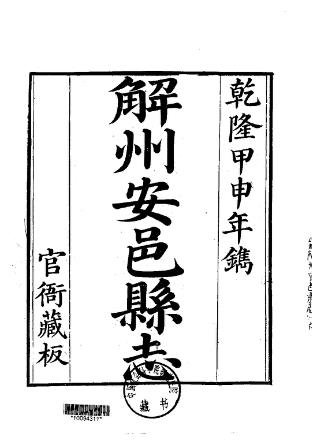 乾隆甲申年鐫
解州安邑縣志
官衙藏板
藏书
*10094317*